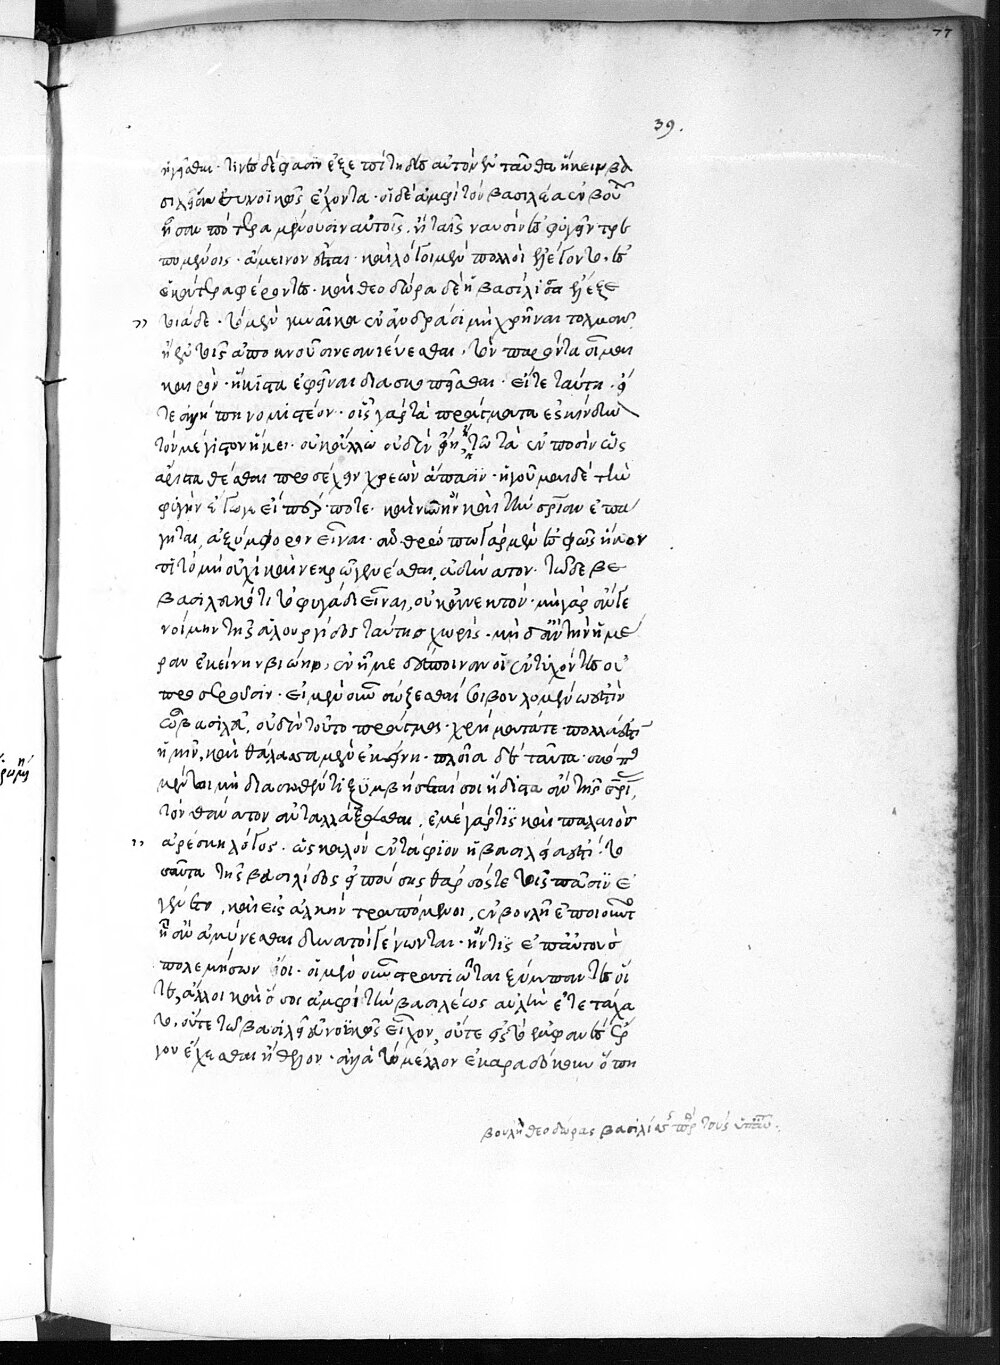 77
39.
ἡγεῖσθαι· τινὲς δέ φασιν ἐξεπίτηδες αὐτὸν ἐνταῦθα ἥκειν βα
σιλεῖ εὐνοϊκῶς ἔχοντα· οἱ δὲ ἀμφὶ τὸν βασιλέα ἐν βουλῇ
ἦσαν πότερα μένουσιν αὐτοῖς, ἢ ταῖς ναυσὶν ἐς φυγὴν τρε
πομένοις· ἄμεινον ἔσται· καὶ λόγοι μὲν πολλοὶ ἐλέγοντο· ἐς
ἑκάτερα φέροντες· καὶ θεοδώρα δὲ ἡ βασίλισσα ἔλεξε
τοιάδε· τὸ μὲν γυναῖκα ἐν ἀνδράσι μὴ χρῆναι τολμᾶν
ἢ ἐν τοῖς ἀποκνοῦσι νεανιεύεσθαι, τὸν παρόντα οἶμαι
καιρὸν· ἥκιστα ἐφεῖναι διασκοπεῖσθαι· εἴτε ταύτῃ· εἴ
τε ἄλλῃ πη νομιστέον· οἷς γὰρ τὰ πράγματα ἐς κίνδυνον
τὸν μέγιστον ἥκει· οὐκ ἄλλο οὐδὲν τὰ ἐν ποσὶν ὡς
ἄριστα θέσθαι προσέχειν χρεὼν ἅπασιν· ἡγοῦμαι δὲ τὴν
φυγὴν ἔγωγε εἴπερ ποτὲ· καὶ νῦν ἢν καὶ τὴν σωτηρίαν ἐπά
γηται, ἀξύμφορον εἶναι· ἀνθρώπῳ γὰρ μὲν ἐς φῶς ἥκον
τι τὸ μὴ οὐχὶ καὶ νεκρῷ γενέσθαι, ἀδύνατον· τῷ δὲ βε
βασιλευκότι τὸ φυγάδι εἶναι, οὐκ ἀνεκτόν· μὴ γὰρ ἂν γε
νοίμην τῆς ἁλουργίδος ταύτης χωρίς· μὴ δ' ἂν τὴν ἡμέ
ραν ἐκείνην βιώην, ἐν ᾗ με δέσποιναν οἱ ἐντυχόντες οὐ
προσεροῦσιν· εἰ μὲν οὖν σώζεσθαί σοι βουλομένῳ ἐστὶν
ὦ βασιλεῦ, οὐδὲν τοῦτο πρᾶγμα· χρήματά τε πολλά ἐστιν
ἡμῖν, καὶ θάλασσα μὲν ἐκείνη· πλοῖα δὲ ταῦτα· σκόπει
μέντοι μὴ διασωθέντι ξυμβήσεταί σοι ἥδιστα ἂν τῆς σωτηρίας
τὸν θάνατον ἀνταλλάξασθαι, ἐμὲ γάρ τις καὶ παλαιὸς
ἀρέσκει λόγος· ὡς καλὸν ἐντάφιον ἡ βασιλεία ἐστί· το
σαῦτα τῆς βασιλίδος εἰπούσης θάρσός τε τοῖς πᾶσιν ἐ
γένετο, καὶ εἰς ἀλκὴν τραπόμενοι, ἐν βουλῇ ἐποιοῦντο
ᾗ ἂν ἀμύνεσθαι δυνατοὶ γένωνται· ἤν τις ἐπ' αὐτοὺς
πολεμήσων ἴοι· οἱ μὲν οὖν στρατιῶται ξύμπαντες οἵ
τε, ἄλλοι καὶ ὅσοι ἀμφὶ τὴν βασιλέως αὐλὴν ἐτετάχα
το, οὔτε τῷ βασιλεῖ εὐνοϊκῶς εἶχον, οὔτε εἰς τὸ ἐμφανὲς ἔρ
γου ἔχεσθαι ἤθελον· ἀλλὰ τὸ μέλλον ἐκαραδόκουν ὅπη
βουλὴ θεοδώρας βασιλίσσης πρὸς τοὺς